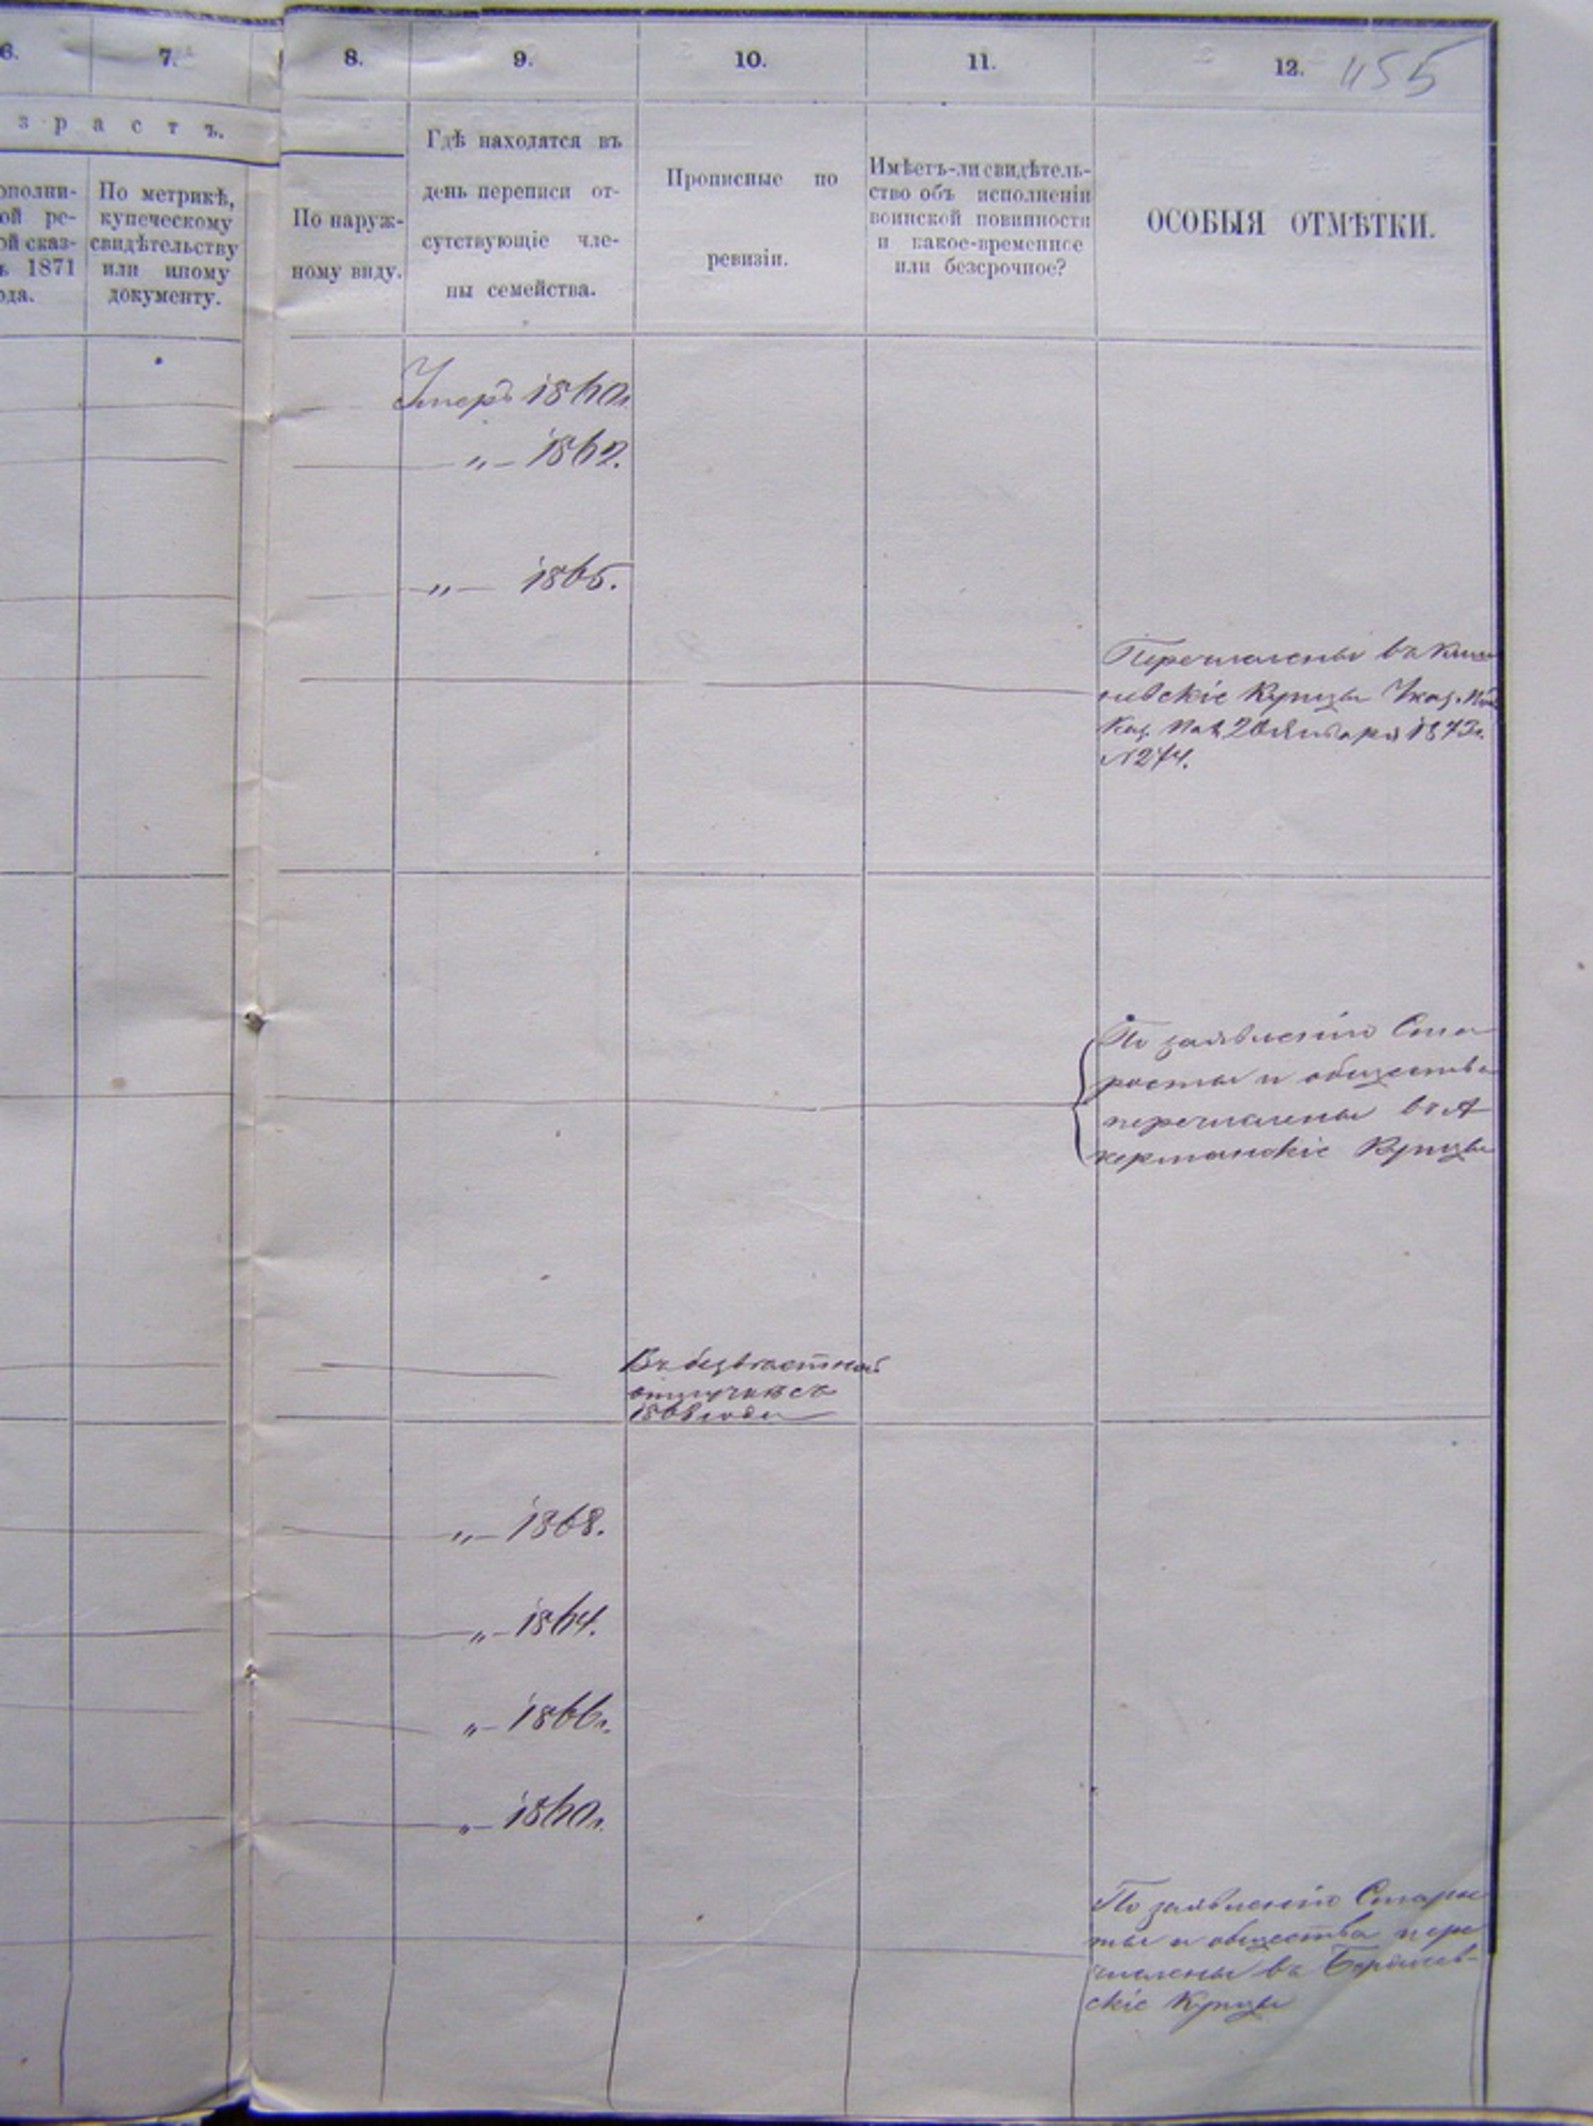 6.
7.
8.
9.
10.
11.
12.
455
зрастъ.
ополни-
ой ре-
ой сказ-
ъ 1871
ода.
По метрикѣ,
купеческому
свидѣтельству
или иному
документу.
По наруж-
ному виду.
Гдѣ находятся въ
день переписи от-
сутствующіе чле-
ны семейства.
Прописные по
ревизіи.
Имѣетъ-ли свидѣтель-
ство объ исполненіи
воинской повинности
и какое-временное
или безсрочное?
ОСОБЫЯ ОТМѢТКИ.
Умеръ 1860г.
„— 1862.
„— 1865.
Перечислены въ Киши
невскіе Купцы Указ.
Каз. Пал. 20 Января 1873г.
№274.
По заявленію Ста
росты и общества
перечислены въ А
керманскіе Купцы
Въ безвѣстной
отлучкѣ съ
1868 года
„— 1868.
„— 1864.
„— 1866г.
„— 1860г.
По заявленію Старос
ты и общества пере
числены въ
скіе Купцы